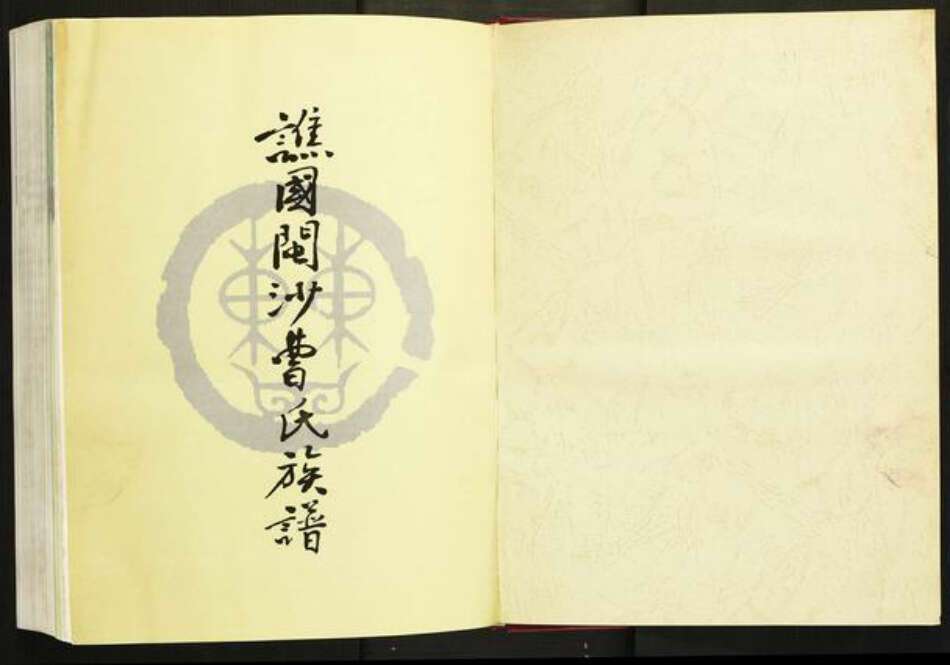 譙國閩沙曹氏族譜